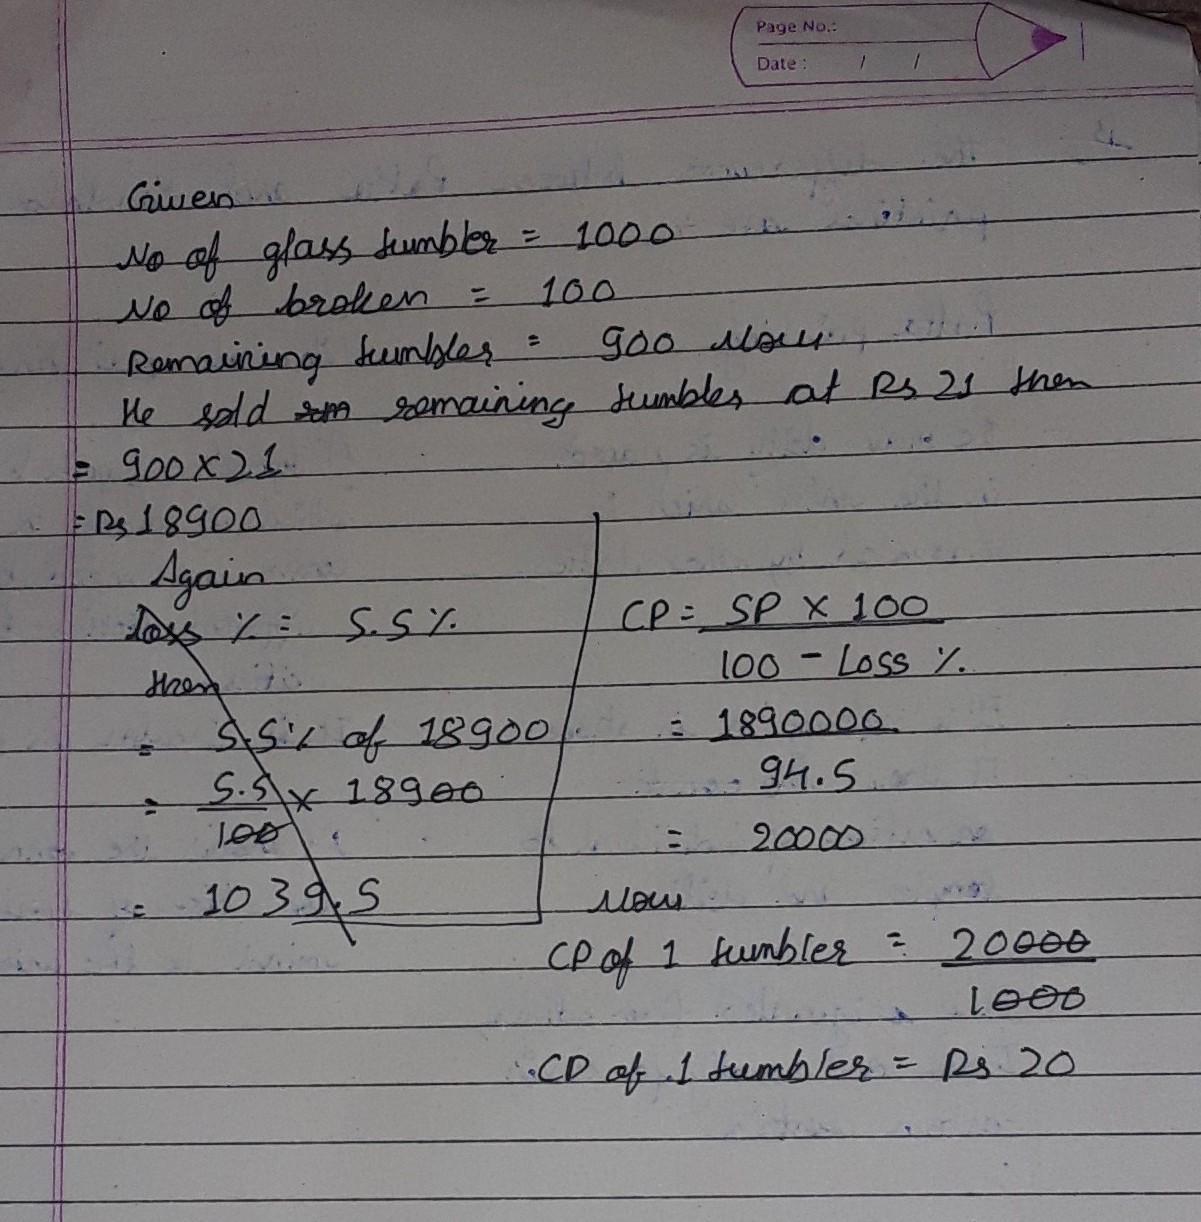 Page No.:
Date : / /
Given
No of glass tumbler = 1000
No of broken = 100
Remaining tumbler = 900 Now
He sold remaining tumbler at Rs 21 then
= 900 x 21
= Rs 18900
Again
Loss % = 5.5 %
then
= 5.5 % of 18900
= 5.5 x 18900
100
= 1039.5
CP = SP X 100
100 - Loss %
= 1890000
94.5
= 20000
Now
CP of 1 tumbler = 20000
1000
CP of 1 tumbler = Rs 20